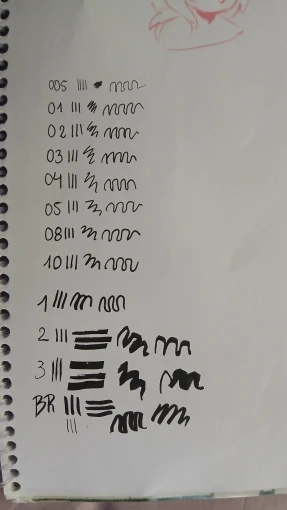 005
01
02
03
04
05
08
10
1
2
3
BR